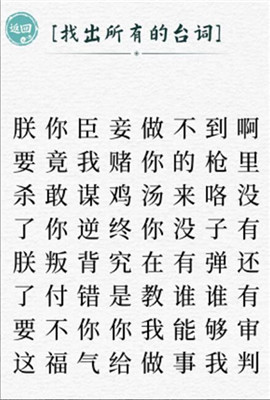 返回
[找出所有的台词]
朕你臣妾做不到啊
要竟我赌你的枪里
杀敢谋鸡汤来咯没
了你逆终你没子有
朕叛背究在有弹还
了付错是教谁谁有
要不你你我能够审
这福气给做事我判